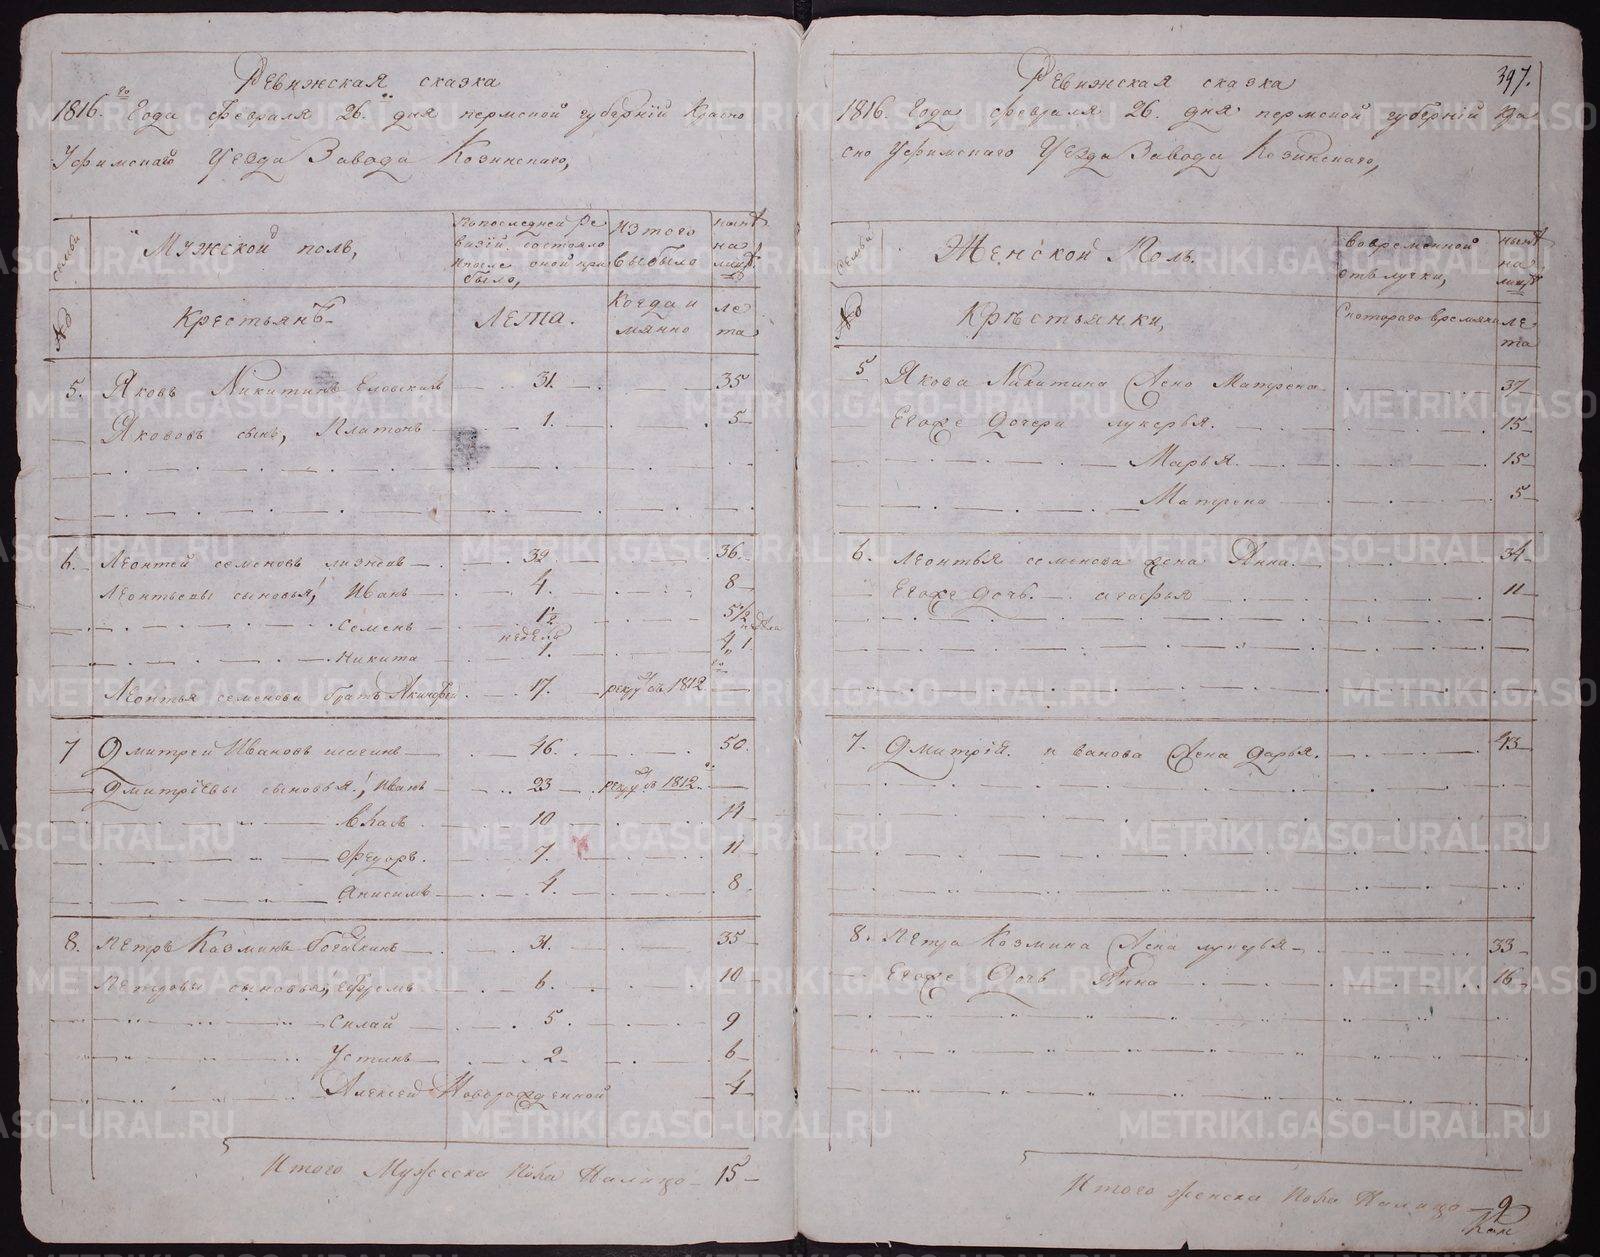 Ревижская сказка
1816.го Года Февраля 26. дня пермской губернiй Красно
Уфимскаго Уезда Завода Козинскаго,
семьи
Мужской полъ,
Попоследней Ре
визiй состояло
ипосле оной при
было,
Изтого
выбыло
ныне
на
лицо
№
Крестьянъ
Лета.
Когда и
мянно
ле
та
5. Яковъ Никитинъ 31. 35
Якововъ сынъ, Платонъ 1. 5
6. Леонтей семеновъ 32. 36.
Леонтьевы сыновья, Иванъ 4. 8
Семенъ 1/2 5 1/2
неделя
Никита 1. 4, 1
Леонтья семенова братъ 17. рекрутъ 1812го
7 Дмитрей Ивановъ 46. 50.
Дмитрiевы сыновья, Иванъ 23 рекрутъ 1812.
10 14
Федоръ. 7. 11
Анисимъ 4. 8
8. Петръ Козминъ 31. 35
Петровы сыновья, Ефремъ 6. 10
5. 9
Устинъ 2 6
Алексей Новорожденной 4
Итого Мужеска пола Налицо 15
397.
Ревижская сказка
1816. Года февраля 26. дня пермской губернiй Кра
сно Уфимскаго Уезда Завода Козинскаго,
семьи
Женской Поль.
Вовременной
отълучки,
ныне
на
лицо
№
Кръстьянки,
Скотораго времяни
ле
та
5 Якова Никитина Жено Матрена 37
Егоже Дочери лукерья. 15
Марья. 15
Матрена 5
6. Леонтья семенова жена Анна. 34
Егоже дочь. агафья 11
7. Дмитрiя ивановa Жена дарья. 43
8. Петра Козмина Жена лукерья 33
Егоже Дочь Анна 16
Итого женска пола Налицо 9
METRIKI.GASO-URAL.RU